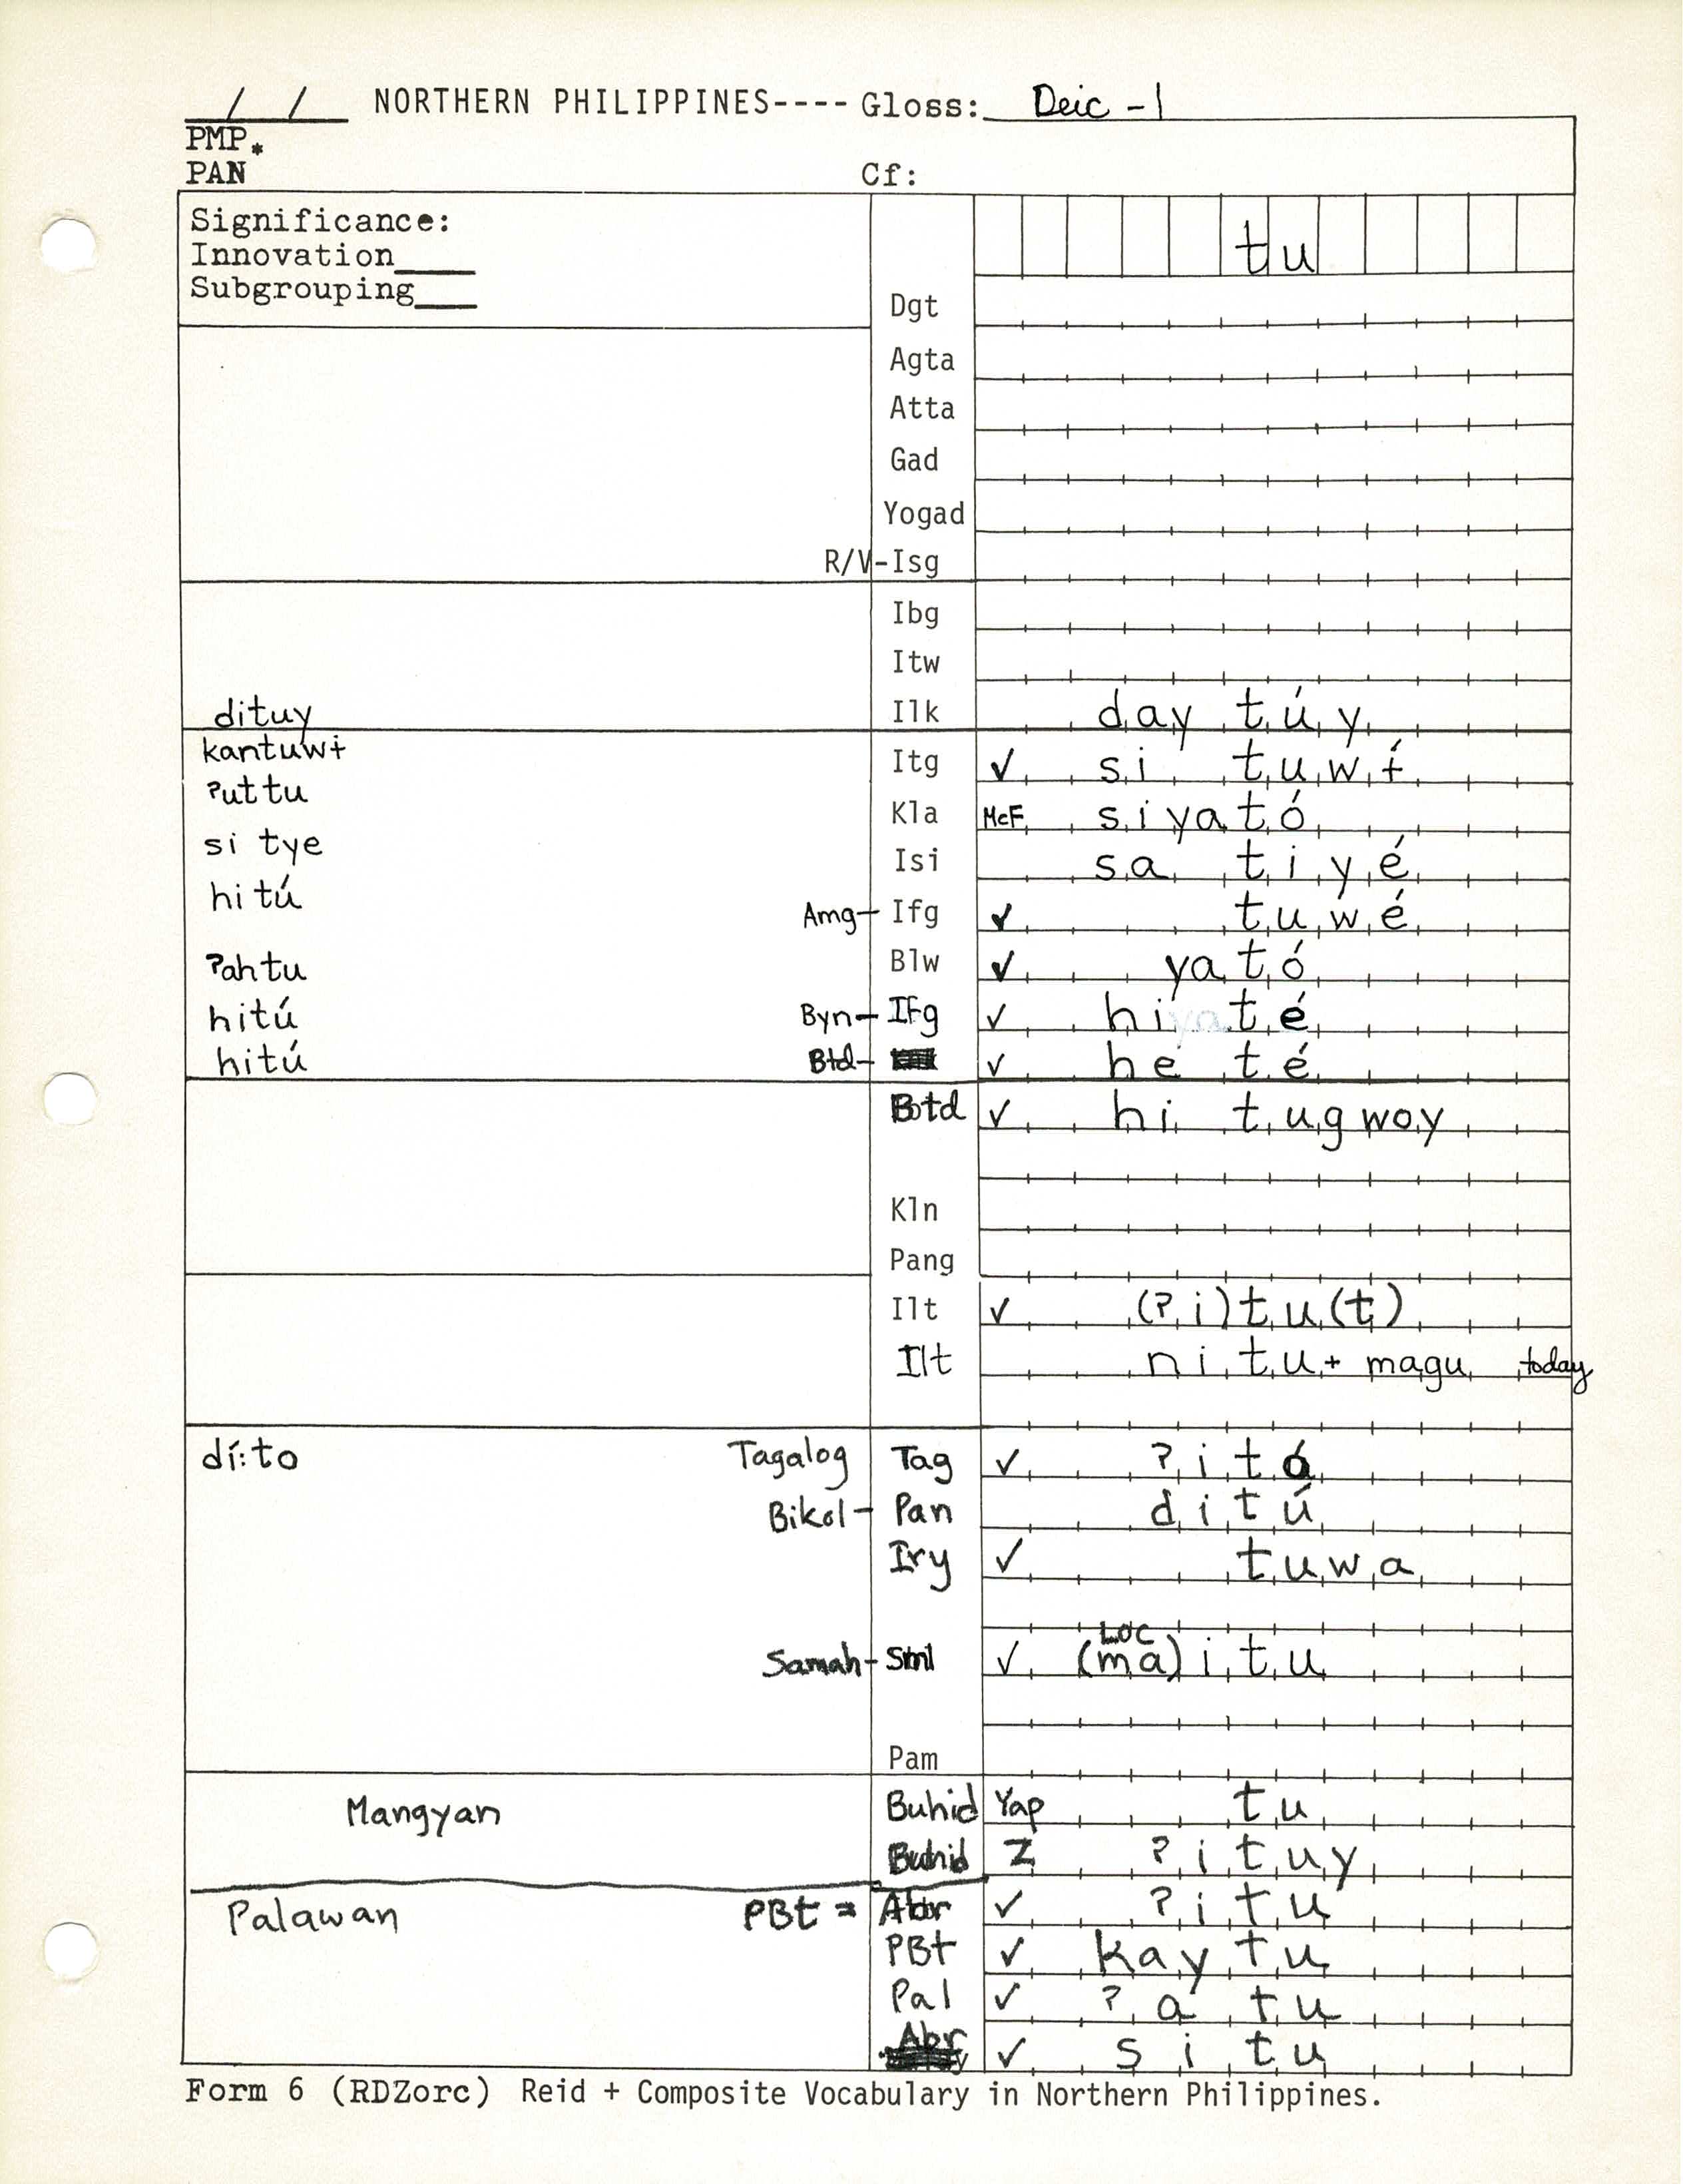 / / NORTHERN PHILIPPINES---- Gloss: Deic -1
PMP *
PAN Cf:
Significance: tu
Innovation____
Subgrouping____
Dgt
Agta
Atta
Gad
Yogad
R/V-Isg
Ibg
Itw
dituy Ilk day túy
kantuwɨ Itg ✓ si tuwɨ́
ʔuttu Kla McF siyató
si tye Isi sa tiyé
hitú Amg- Ifg ✓ tuwé
ʔahtu Blw ✓ yató
hitú Byn- Ifg ✓ hi té
hitú Btd- ✓ he té
Btd ✓ hi tugwoy
Kln
Pang
Ilt ✓ (ʔi)tu(t)
Ilt nitu + magu today
dí:to Tagalog Tag ✓ ʔitó
Bikol- Pan ditú
Iry ✓ tuwa
LOC
Samah- Sml ✓ (ma)itu
Pam
Mangyan Buhid Yap tu
Buhid Z ʔituy
Palawan PBt = Abr ✓ ʔitu
PBt ✓ kaytu
Pal ✓ ʔa tu
Abr ✓ situ
Form 6 (RDZorc) Reid + Composite Vocabulary in Northern Philippines.